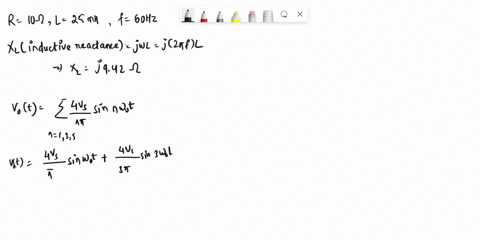 R = 10Ω, L = 25 mH, f = 60Hz
XL (inductive reactance) = jωL = j(2πf)L
→ XL = j9.42 Ω
V0(t) = ∑ 4Vs/nπ sin nω0t
n=1,3,5
V0(t) = 4Vs/π sin ω0t + 4Vs/3π sin 3ω0t